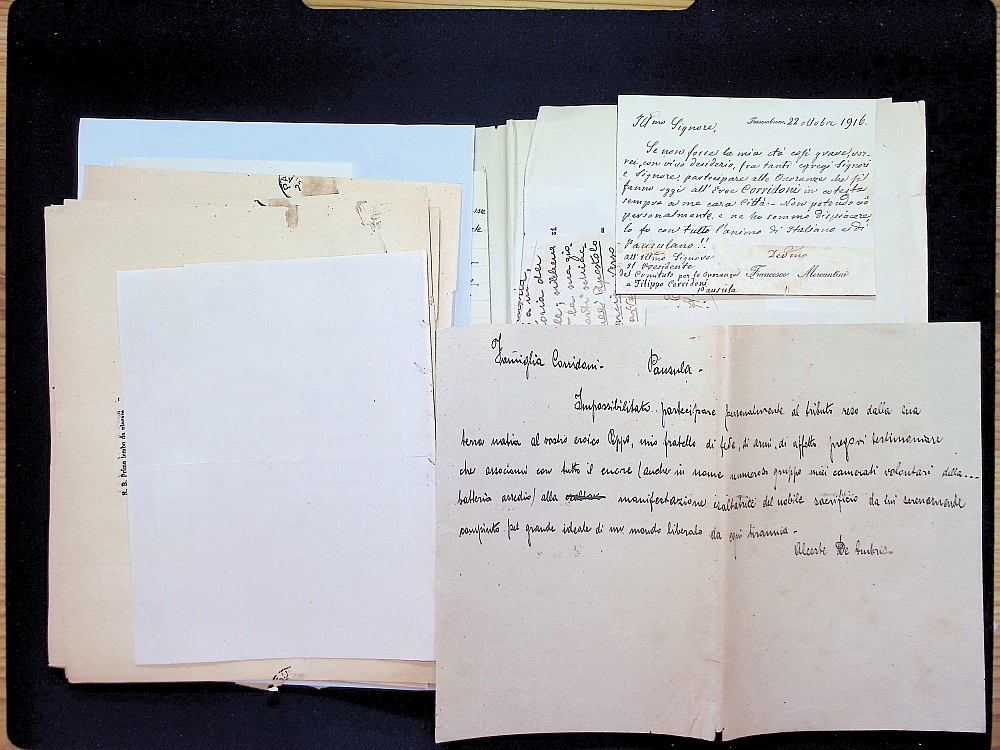 Ill.mo Signore,
Fossombrone, 22 ottobre 1916.
Se non fosse la mia età così grave, vor-
rei, con vivo desiderio, fra tanti egregi Signori
e Signore, partecipare alle Onoranze che si
fanno oggi all'Eroe Corridoni in cotesta
sempre a me cara Città. - Non potendo ciò
personalmente, e ne ho sommo dispiacere,
lo fo con tutto l'animo di Italiano e di
Pausulano!!
all'Ill.mo Signore
Il Presidente
del Comitato per le Onoranze
a Filippo Corridoni
Pausula
Dev.mo
Francesco Mercantini
N. B. Primo lembo da
Famiglia Corridoni - Pausula -
Impossibilitato partecipare personalmente al tributo reso dalla sua
terra natia al vostro eroico Pippo, mio fratello di fede, di armi, di affetto pregovi testimoniare
che associomi con tutto il cuore (anche in nome numeroso gruppo miei camerati volontari della...
batteria assedio) alla manifestazione esaltatrice del nobile sacrificio da lui serenamente
compiuto pel grande ideale di un mondo liberato da ogni tirannia -
Alceste De Ambris